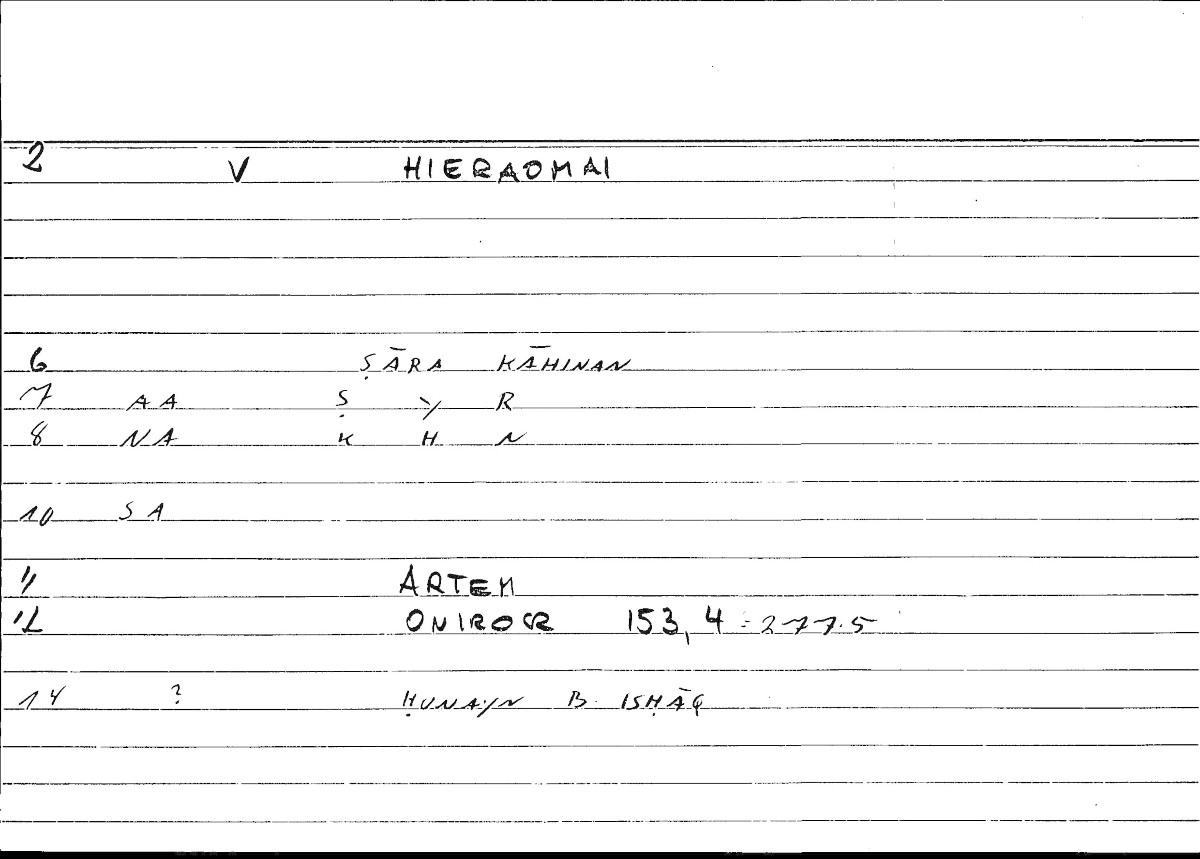 2 V HIERAOMAI
6 ṢĀRA KĀHINAN
7 AA Ṣ Y R
8 NA K H N
10 SA
11 ARTEM
12 ONIROCR 153,4 = 277.5
14 ? ḤUNAYN B. ISḤĀQ